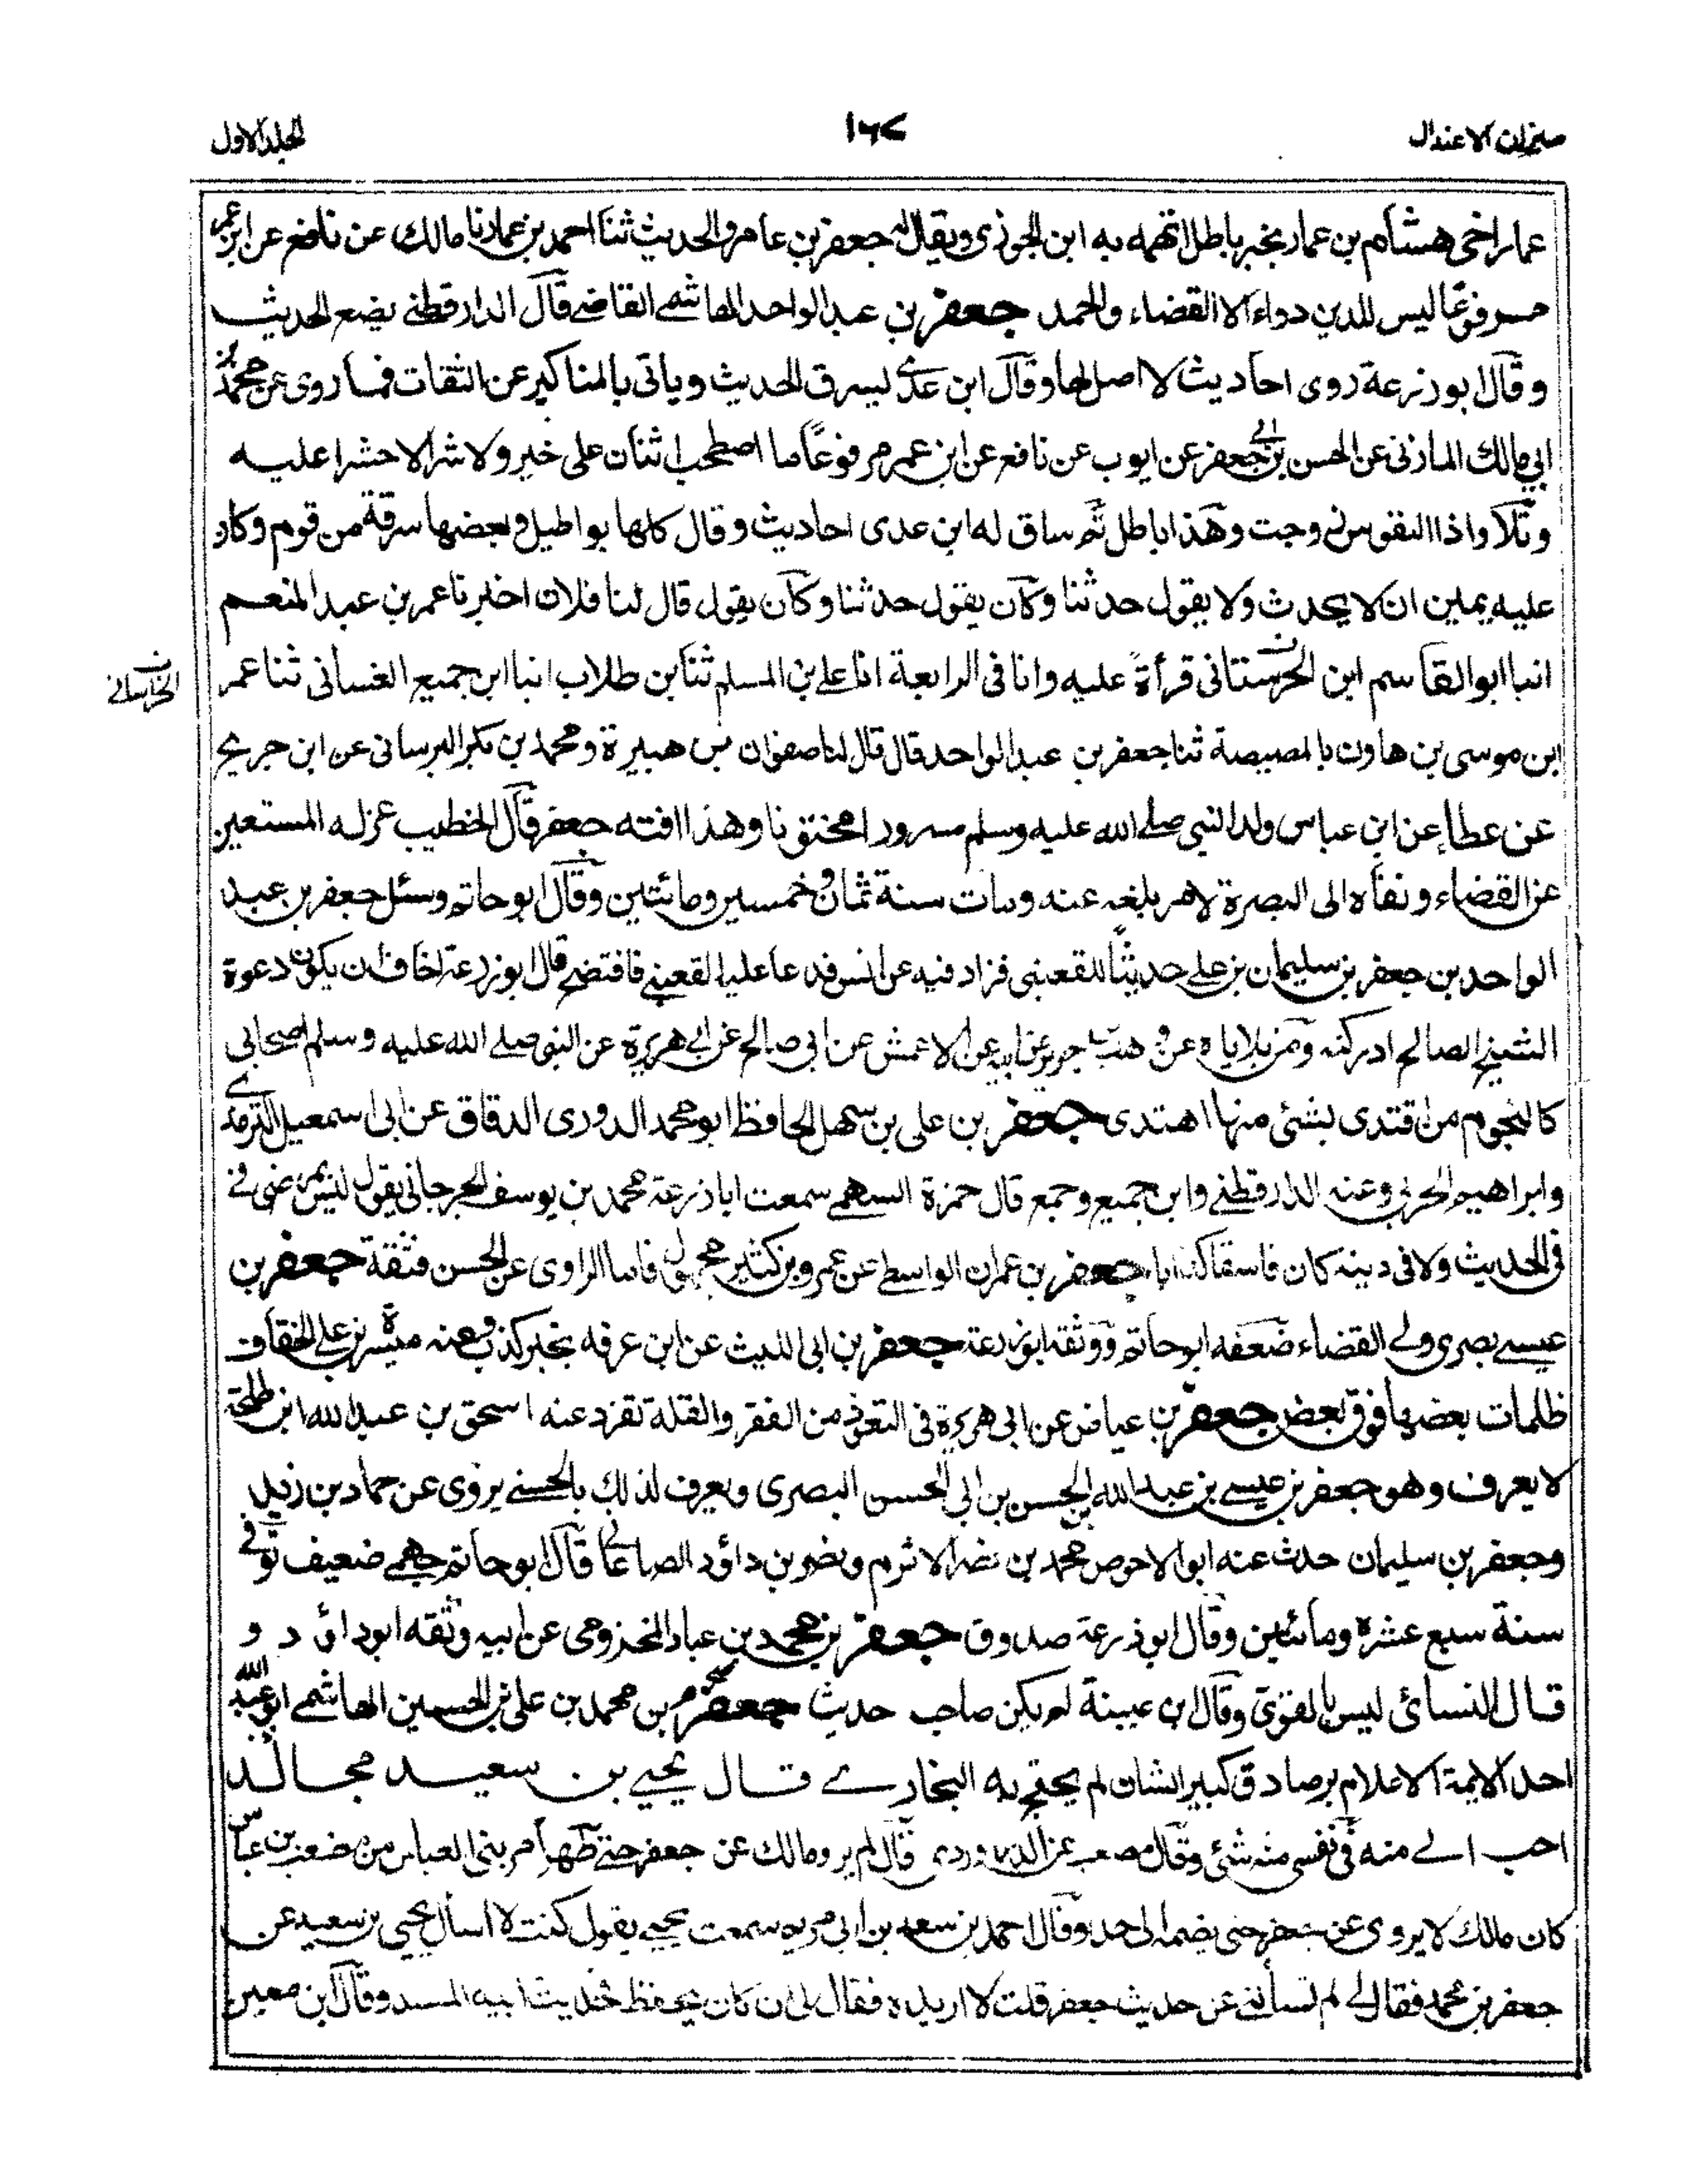 ميزان الاعتدال
١٦٧
المجلد الاول
عمار اخى هشام بن عمار بخبر باطل اتهمه به ابن الجوزى ويقال له جعفر بن عامر والحديث ثنا احمد بن عمار نا مالك عن نافع عن ابن عمر
مرفوعًا ليس للدين دواء الا القضاء والحمد جعفر بن عبد الواحد الهاشمے القاضے قال الدارقطنے يضع الحديث
وقال ابو زرعة روى احاديث لا اصل لها وقال ابن عدى يسرق الحديث وياتى بالمناكير عن الثقات فمما روى عن محمد بن
ابى مالك المازنى عن الحسن بن ابى جعفر عن ايوب عن نافع عن ابن عمر مرفوعًا ما اصطحب اثنان على خير ولا شر الا حشرا عليه
وتلا واذا النفوس زوجت وهذا باطل ثم ساق له ابن عدى احاديث وقال كلها بواطيل وبعضها سرقة من قوم وكان
عليه يمين ان لا يحدث ولا يقول حدثنا وكان يقول حدثنا وكان يقول قال لنا فلان اخبرنا عمر بن عبد المنعم
انبا ابو القاسم ابن الحرستانى قرأة عليه وانا فى الرابعة انا على بن المسلم ثنا بن طلاب انبا ابن جميع الغسانى ثنا عمر
الخراسانے
ابن موسى بن هاون بالمصيصة ثنا جعفر بن عبد الواحد قال قال لنا صفوان بن هبيرة ومحمد بن بكر البرسانى عن ابن جريج
عن عطاء عن ابن عباس ولد النبى صلے الله عليه وسلم مسرورا مختونا وهذا افته جعفر قال الخطيب عزله المستعين
عن القضاء ونفاه الى البصرة لامر بلغه عنه ومات سنة ثمان وخمسين ومائتين وقال ابو حاتم وسئل جعفر بن عبد
الواحد بن جعفر بن سليمان بن على حديثًا للقعنبى فزاد فيه عن انس فدعا عليه القعنبے فافتضح قال ابو زرعة اخاف ان يكون دعوة
الشيخ الصالح ادركته ومن بلاياه عن وهب بن جرير عن ابيه عن الاعمش عن ابى صالح عن ابى هريرة عن النبى صلے الله عليه وسلم اصحابى
كالنجوم من اقتدى بشئ منها اهتدى جعفر بن على بن سهل الحافظ ابو محمد الدورى الدقاق عن ابى اسمعيل الترمذى
وابراهيم الحربى وعنه الدارقطنے وابن جميع وجمع قال حمزة السهمے سمعت ابا زرعة محمد بن يوسف الجرجانى يقول ليس بمرضى فے
فى الحديث ولا فى دينه كان فاسقا كذابا جعفر بن عمران الواسطے عن عمرو بن كثير مجهول فاما الراوى عن الحسن فثقة جعفر بن
عيسے بصرى ولے القضاء ضعفه ابو حاتم ووثقه ابو زرعة جعفر بن ابى الليث عن ابن عرفه بخبر كذب وعنه ميسرة بن على الخفاف
ظلمات بعضها فوق بعض جعفر بن عياض عن ابى هريرة فى التعوذ من الفقر والقلة تفرد عنه اسحق بن عبد الله ابن طلحة
لا يعرف وهو جعفر بن عيسے بن عبد الله بن الحسن بن ابى الحسن البصرى ويعرف لذلك بالحسنے يروى عن حماد بن زيد
وجعفر بن سليمان حدث عنه ابو الاحوص محمد بن نصر الاثرم ونصر بن داؤد الصاغانى قال ابو حاتم جهمے ضعيف توفے
سنة سبع عشرة ومائتين وقال ابو زرعة صدوق جعفر بن محمد بن عباد المخزومى عن ابيه وثقه ابو داؤد و
قال النسائى ليس بالقوى وقال ابن عيينة لم يكن صاحب حديث جعفر صح م بن محمد بن على بن الحسين الهاشمے ابو عبد الله
احد الائمة الاعلام بر صادق كبير الشان لم يحتج به البخارے قال يحيے بن سعيد مجالد
احب الے منه فى نفسى منه شئ وقال مصعب عن الدراوردى قال لم يرو مالك عن جعفر حتے ظهر امر بنى العباس مصعب بن عباس
كان مالك لا يروى عن جعفر حتى يضمه الى احد وقال احمد بن سعد بن ابى مريم سمعت يحيے يقول كنت لا اسأل يحيى بن سعيد عن
جعفر بن محمد فقال لے لم لم تسألنے عن حديث جعفر قلت لا اريده فقال لے ان كان يحفظ فحديث ابيه المسند وقال ابن معين